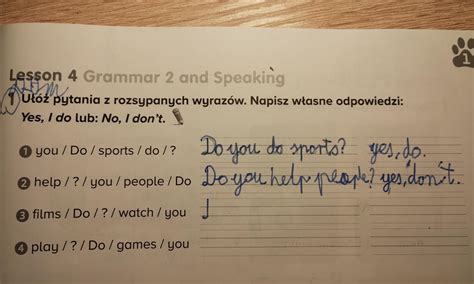 1
Lesson 4 Grammar 2 and Speaking
Dom
1 Ułóż pytania z rozsypanych wyrazów. Napisz własne odpowiedzi:
Yes, I do lub: No, I don't.
1 you / Do / sports / do / ? Do you do sports? yes, do.
2 help / ? / you / people / Do Do you help people? yes, don't.
3 films / Do / ? / watch / you
4 play / ? / Do / games / you